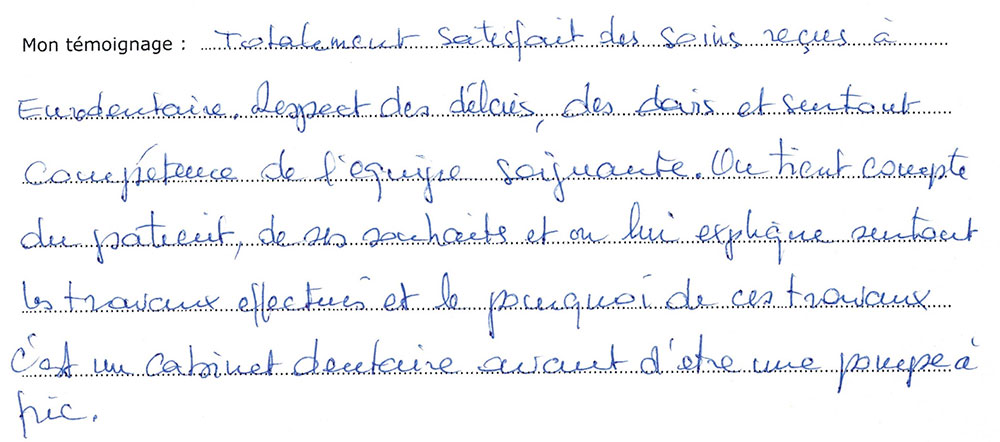 Mon témoignage : Totalement satisfait des soins reçus à
Eurodentaire. Respect des délais, des devis et surtout
compétence de l'équipe soignante. On tient compte
du patient, de ses souhaits et on lui explique surtout
les travaux effectués et le pourquoi de ces travaux
c'est un cabinet dentaire avant d'être une pompe à
fric.